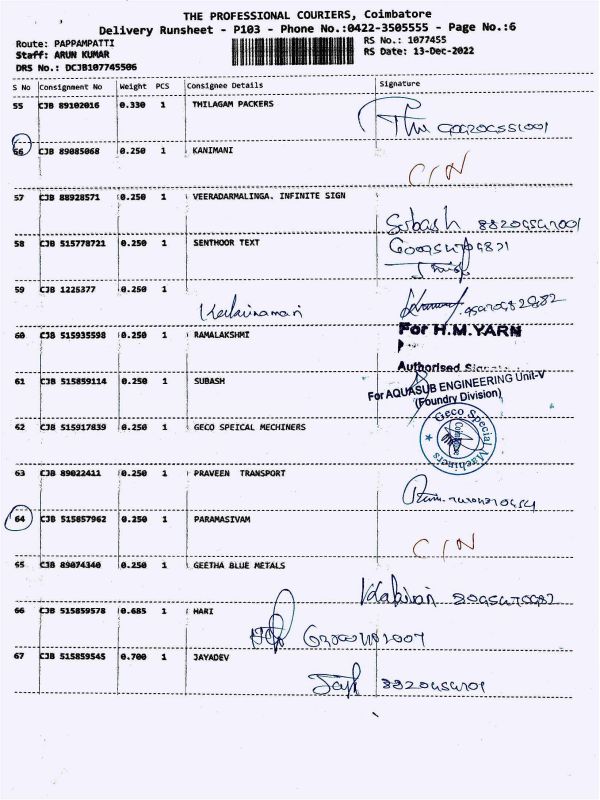 THE PROFESSIONAL COURIERS, Coimbatore
Delivery Runsheet - P103 - Phone No.:0422-3505555 - Page No.:6
Route: PAPPAMPATTI RS No.: 1077455
Staff: ARUN KUMAR RS Date: 13-Dec-2022
DRS No.: DCJB107745506
S No Consignment No Weight PCS Consignee Details Signature
55 CJB 89102016 0.330 1 THILAGAM PACKERS
56 CJB 89085068 0.250 1 KANIMANI
C/N
57 CJB 88928571 0.250 1 VEERADARMALINGA. INFINITE SIGN
Subash
58 CJB 515778721 0.250 1 SENTHOOR TEXT
59 CJB 1225377 0.250 1
60 CJB 515935598 0.250 1 RAMALAKSHMI
For H.M.YARN
Authorised
61 CJB 515859114 0.250 1 SUBASH
For AQUASUB ENGINEERING Unit-V
(Foundry Division)
62 CJB 515917839 0.250 1 GECO SPEICAL MECHINERS
Geco Special Machiners
63 CJB 89022411 0.250 1 PRAVEEN TRANSPORT
64 CJB 515857962 0.250 1 PARAMASIVAM
C/N
65 CJB 89074340 0.250 1 GEETHA BLUE METALS
66 CJB 515859578 0.685 1 HARI
67 CJB 515859545 0.700 1 JAYADEV